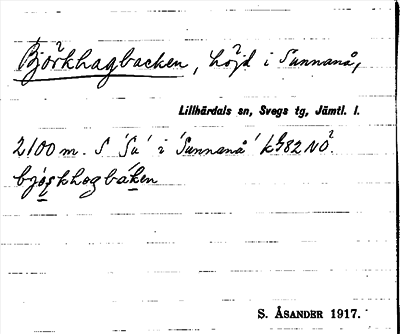 Björkhagbacken, höjd i Sunnanå,
Lillhärdals sn, Svegs tg, Jämtl. l.
2100 m. S 'Su' i 'Sunnanå' kbl 82 NÖ.
bjo̱ṣkhogbáken
S. ÅSANDER 1917.